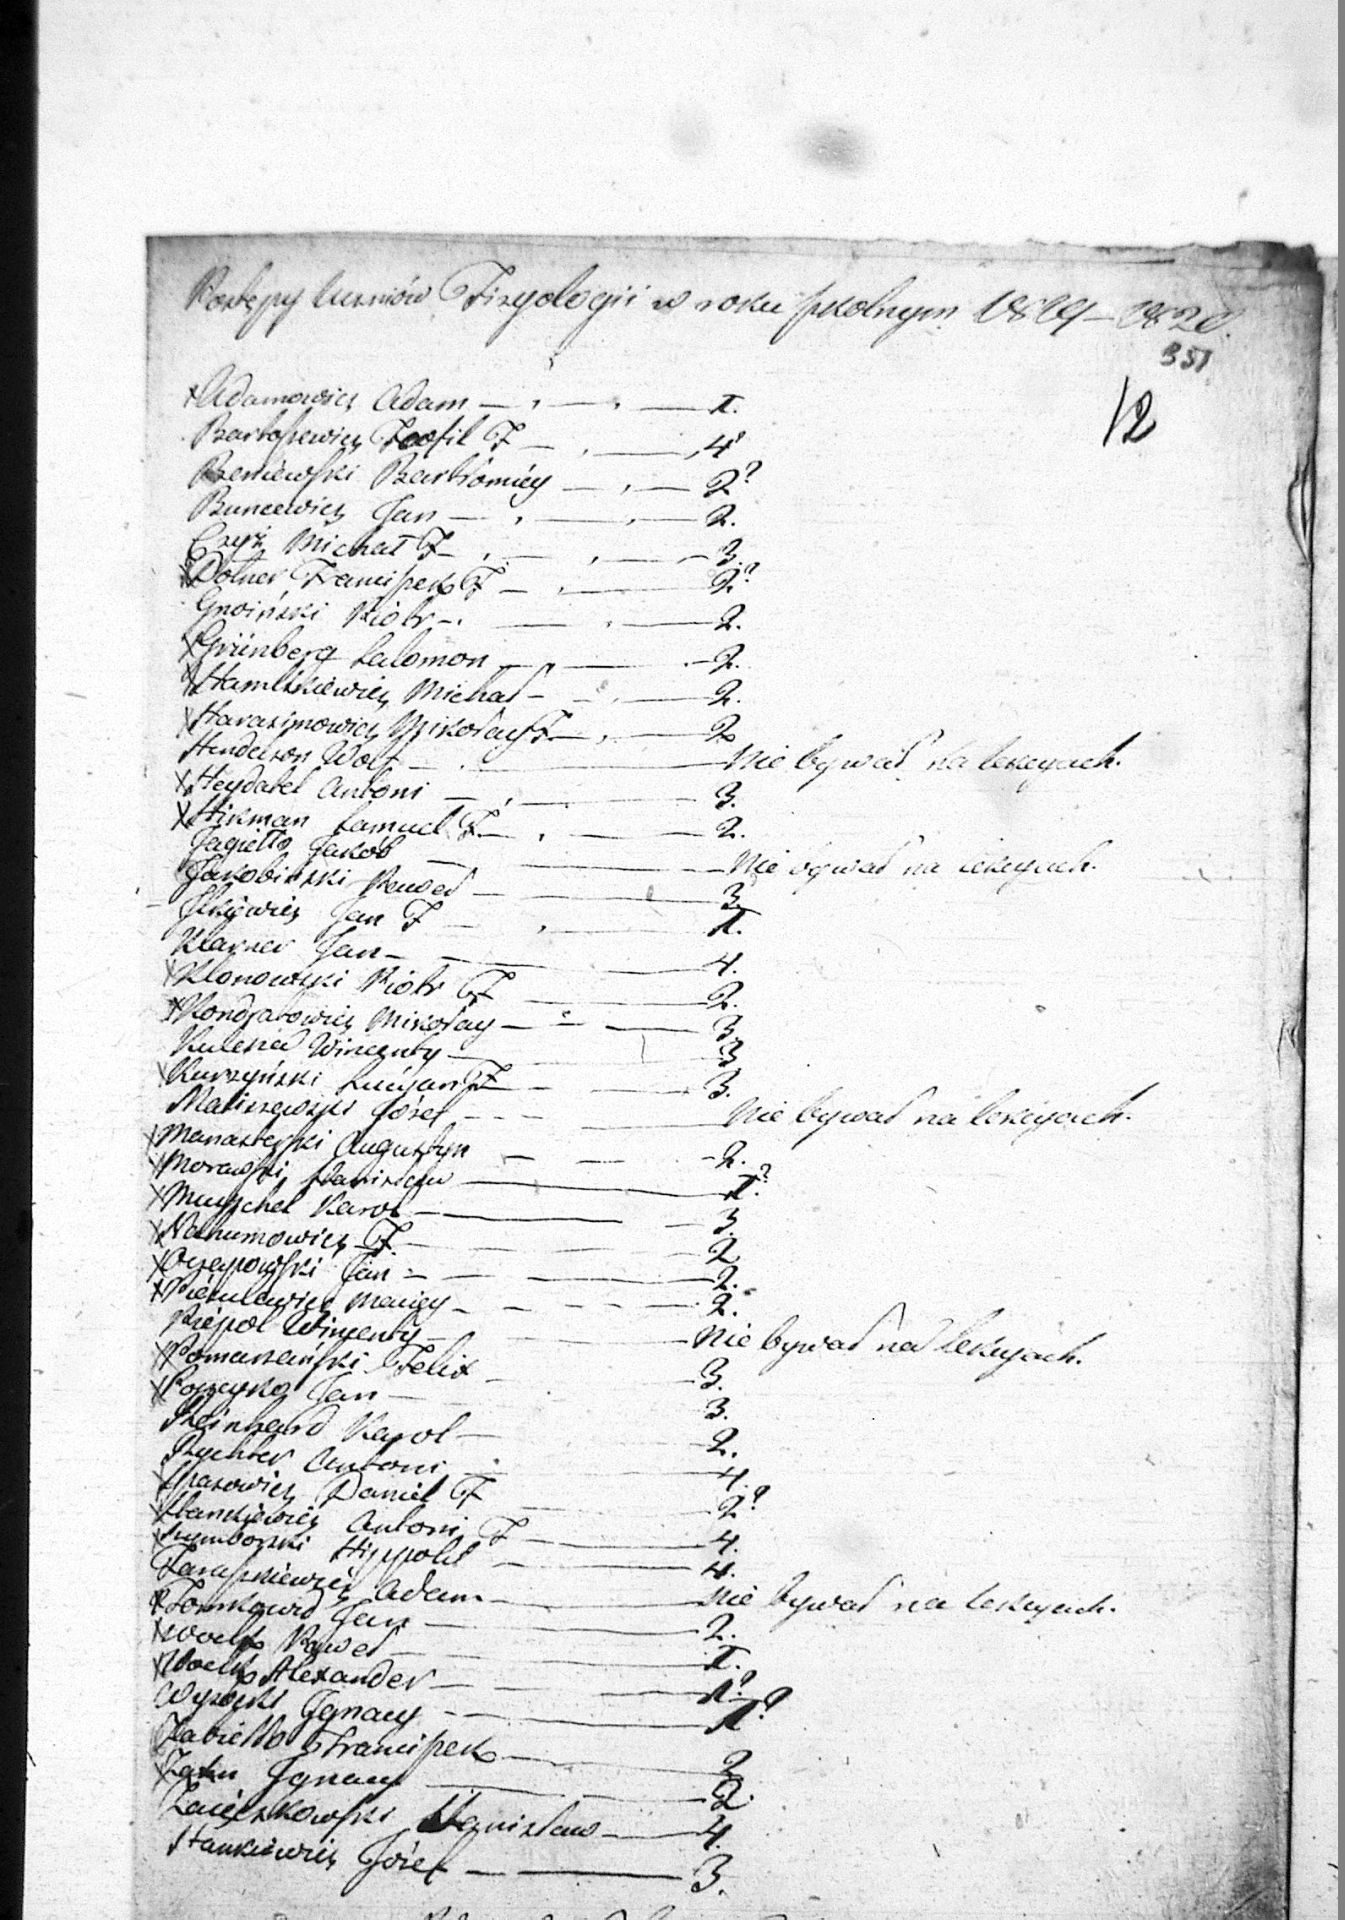 Postępy Uczniów Fizyologii w roku szkolnym 1819–1820.
351
12
xAdamowicz Adam — 1.
Bartoszewicz Teofil F — 4?
Beniewski Bartłomiéy — 2?
Buncewicz Jan — 2.
Czyż Michał F — 3.
xDolner Franciszek F — 2?
Gnoiński Piotr — 2.
xGrünberg Salomon — 2.
xHamlikiewicz Michał — 2.
xHarasimowicz Mikołay F — 2
Hendelson Wolf — Nie bywał na lekcyach.
xHeydatel Antoni — 3.
xHikman Samuel F. — 2.
Jagiełło Jakób — Nie bywał na lekcyach.
Jakobiński Paweł — 3.
Jlkiewicz Jan F — 1.
Klarner Jan — 4.
xKlonowski Piotr F — 2.
xKondratowicz Mikołay — 3
Kulesza Wincenty — 3
xKurzyński Lucyan F — 3.
Maliszewski Józef — Nie bywał na lekcyach.
xManasterski Augustyn — 2.
xMorawski Stanisław — 1?
xMuyschel Karol — 3
xNahumowicz F. — 2
xOczapowski Jan — 2.
x Maciey — 2.
Piépol Wincenty — Nie bywał na lekcyach.
xPomarzański Felix — 3.
xPoyzysko Jan — 3.
Reinhard Karol — 2.
Rychter Antoni — 4.
xSpasowicz Daniel F — 2?
xStankiewicz Antoni F — 4.
xSumborski Hippolit — 4.
Taraszkiewicz Adam — Nie bywał na lekcyach.
xTomkowid Jan — 2.
xWoelk Paweł — 1.
xWoelk Alexander — 1?
Wysocki Jgnacy — 1?
Zabiełło Franciszek — 2
xZahn Jgnacy — 2.
Zaięczkowski Stanisław — 4.
Stankiewicz Józef — 3.